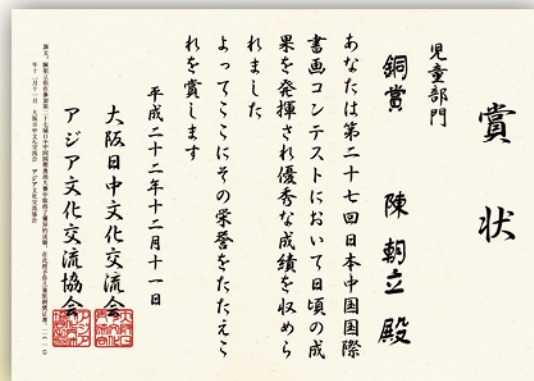 賞状
児童部門
銅賞　陳朝立殿
あなたは第二十七回日本中国国際
書画コンテストにおいて日頃の成
果を発揮され優秀な成績を収めら
れました
よってここにその栄誉をたたえこ
れを賞します
平成二十二年十二月十一日
大阪日中文化交流会
アジア文化交流協会
年十二月十一日　大阪日中文化交流会　アジア文化交流協会